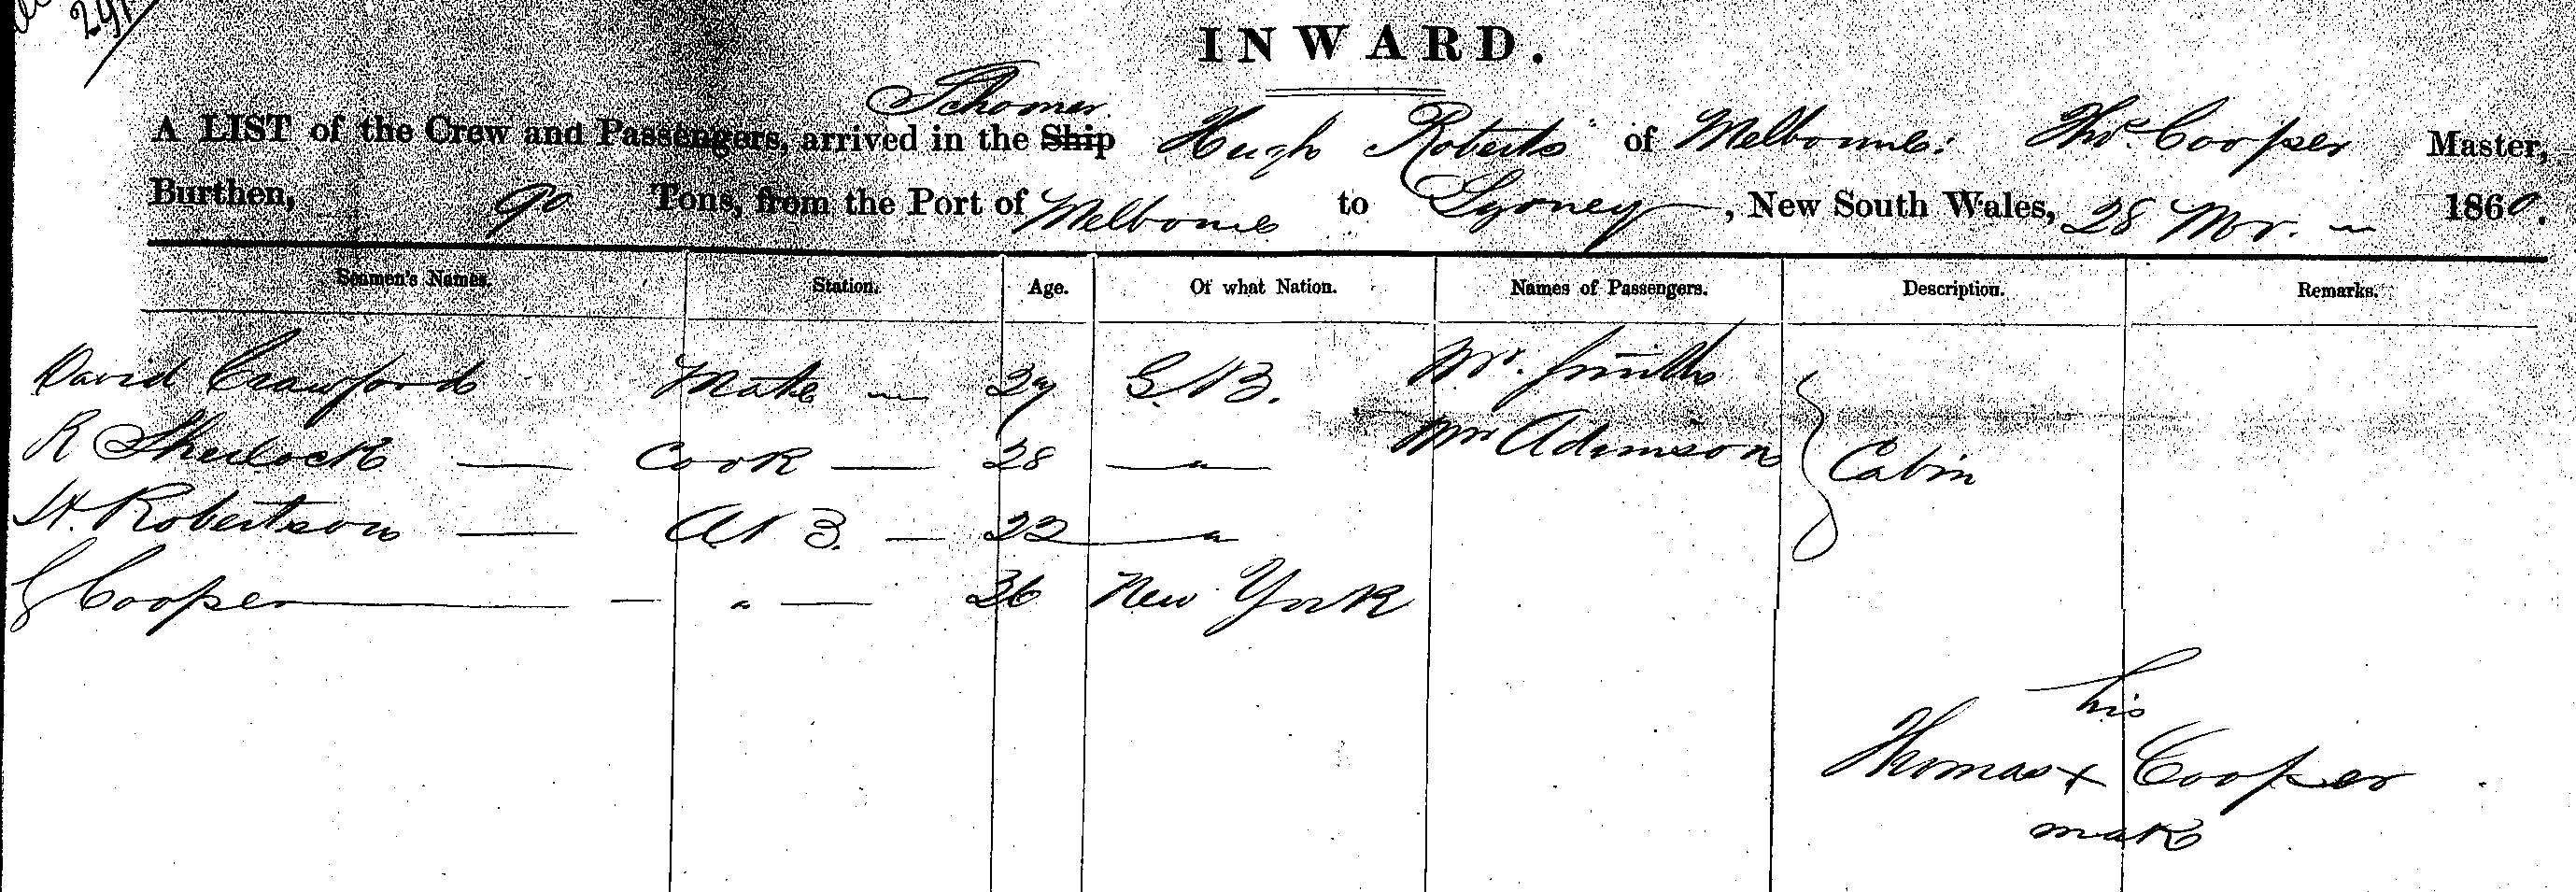 241
INWARD.
Schooner
A LIST of the Crew and Passengers, arrived in the Ship Hugh Roberts of Melbourne: Thos. Cooper Master,
Burthen, 90 Tons, from the Port of Melbourne to Sydney, New South Wales, 28 1860.
Seamen's Names. Station. Age. Of what Nation. Names of Passengers. Description. Remarks.
David Crawford Mate — 29 G.B. Mr. Smith
R Sherlock — Cook — 28 — " — Mr Adamson Cabin
H. Robertson — A B. — 22 — "
G Cooper — " — 36 New York
his
Thomas x Cooper
mark